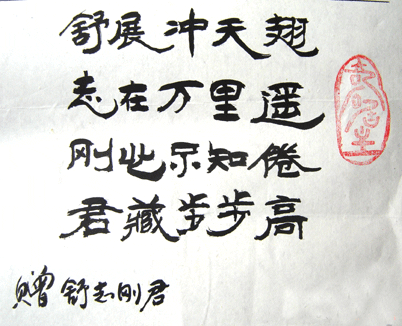 舒展冲天翅
志在万里遥
刚出不知倦
君藏步步高
赠舒志刚君